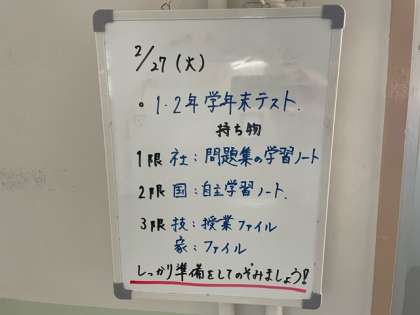 2/27(火)
・1・2年学年末テスト.
持ち物
1限 社:問題集の学習ノート
2限 国:自主学習ノート.
3限 技:授業ファイル
家:ファイル
しっかり準備をしてのぞみましょう!!